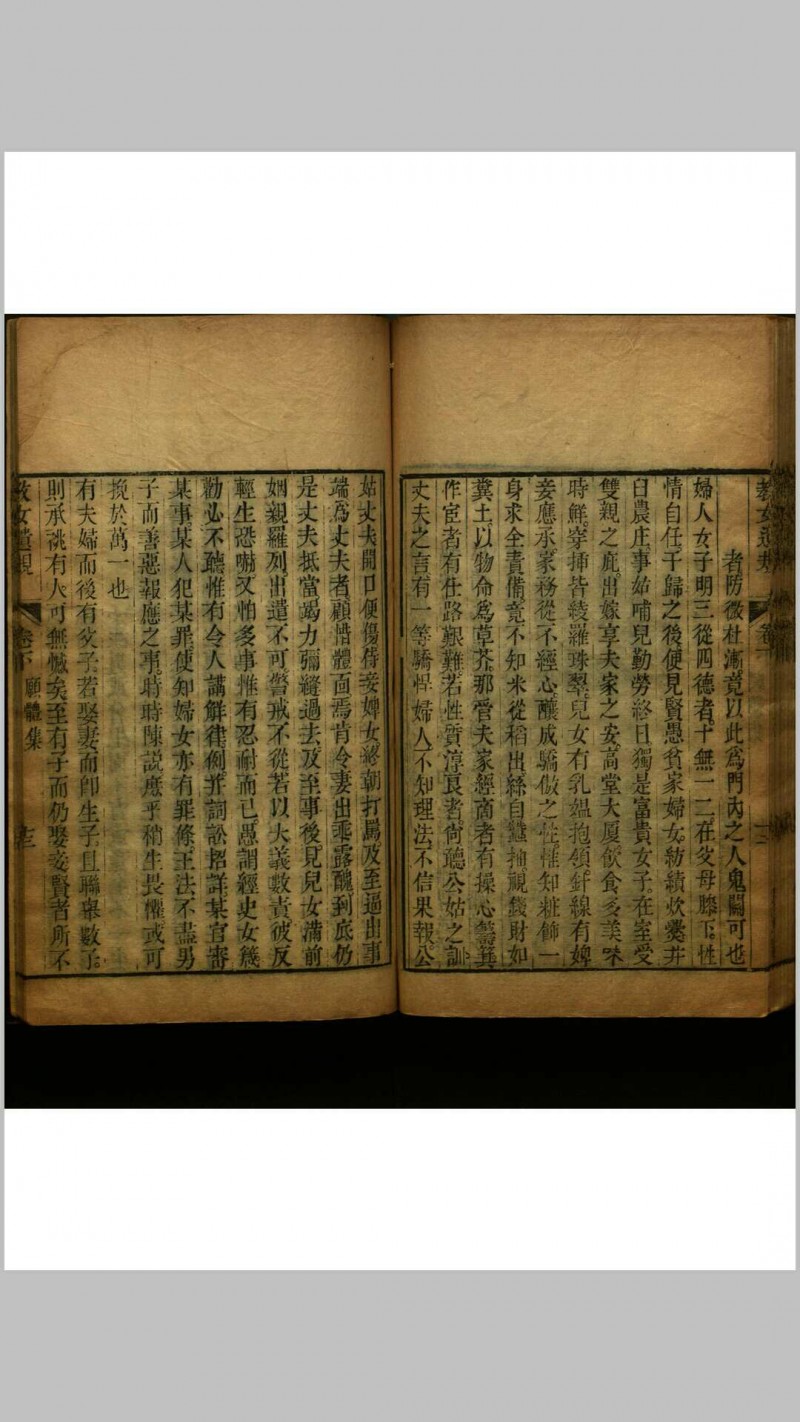 教女遺規
者防微杜漸竟以此為門內之人鬼關可也
婦人女子明三從四德者十無一二在父母膝下性
情自任于歸之後便見賢愚貧家婦女紡績炊爨井
臼農庄事姑哺兒勤勞終日獨是富貴女子在室受
雙親之庇出嫁享夫家之安高堂大厦飲食多美味
時鮮穿揷皆綾羅珠翠兒女有乳媼抱領針線有婢
妾應承家務從不經心釀成驕傲之性惟知粧飾一
身求全責備竟不知米從稻出絲自蠶抽視錢財如
糞土以物命為草芥那管夫家經商者有操心籌算
作宦者有仕路艱難若性質淳良者尚聽公姑之訓
丈夫之言有一等驕悍婦人不知理法不信果報公
姑丈夫開口便傷侍妾婢女終朝打罵及至逼出事
端為丈夫者顧惜體面焉肯令妻出乖露醜到底仍
是丈夫抵當竭力彌縫過去及至事後見兒女滿前
姻親羅列出遣不可警戒不從若以大義數責彼反
輕生恐嚇又怕多事惟有忍耐而已愚謂經史女箴
勸必不聽惟有令人講解律例并詞訟招詳某官審
某事某人犯某罪使知婦女亦有罪條王法不盡男
子而善惡報應之事時時陳說庶乎稍生畏懼或可
挽於萬一也
有夫婦而後有父子若娶妻而即生子且聯舉數子
則承祧有人可無憾矣至有子而仍娶妾賢者所不
教女遺規 卷下 願體集 十三